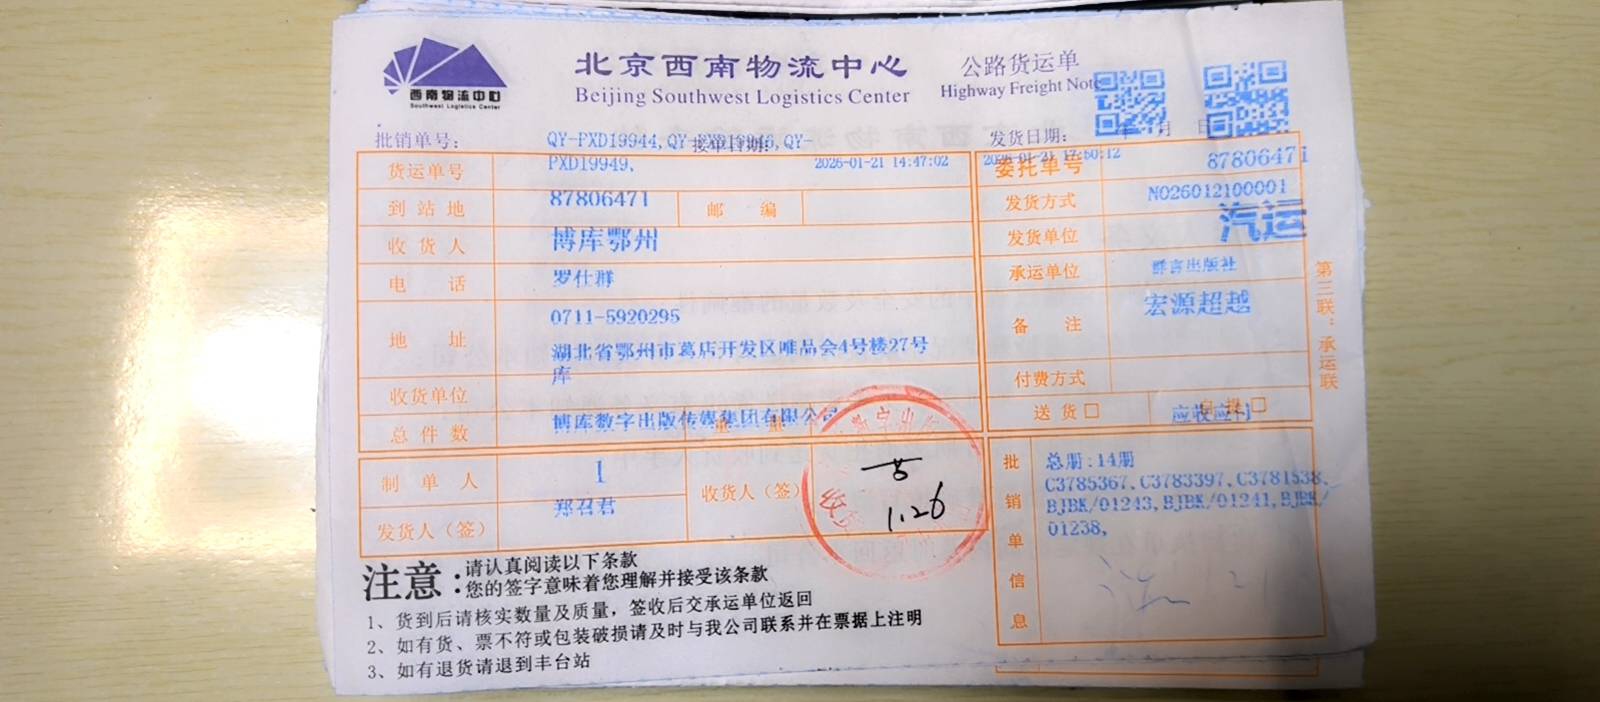 西南物流中心
Southwest Logistics Center
北京西南物流中心
Beijing Southwest Logistics Center
公路货运单
Highway Freight Note
批销单号：
QY-PXD19944, QY-
QY-
PXD19949,
接单日期：
2026-01-21 14:47:02
发货日期：
年 月 日
2026-01-21 17:50:12
货运单号
87806471
委托单号
87806471
到站地
邮 编
发货方式
N026012100001
汽运
收货人
博库鄂州
发货单位
群言出版社
电 话
罗仕群
承运单位
宏源超越
地 址
0711-5920295
湖北省鄂州市葛店开发区唯品会4号楼27号
库
备 注
收货单位
博库数字出版传媒集团有限公司
付费方式
总件数
重 量
送货□
自提□
制单人
1
郑召君
收货人（签）
收货
1.26
发货人（签）
批销单信息
总册:14册
C3785367, C3783397, C3781538,
BJBK/01243, BJBK/01241, BJBK/
01238,
第三联：承运联
注意：
请认真阅读以下条款
您的签字意味着您理解并接受该条款
1、货到后请核实数量及质量，签收后交承运单位返回
2、如有货、票不符或包装破损请及时与我公司联系并在票据上注明
3、如有退货请退到丰台站